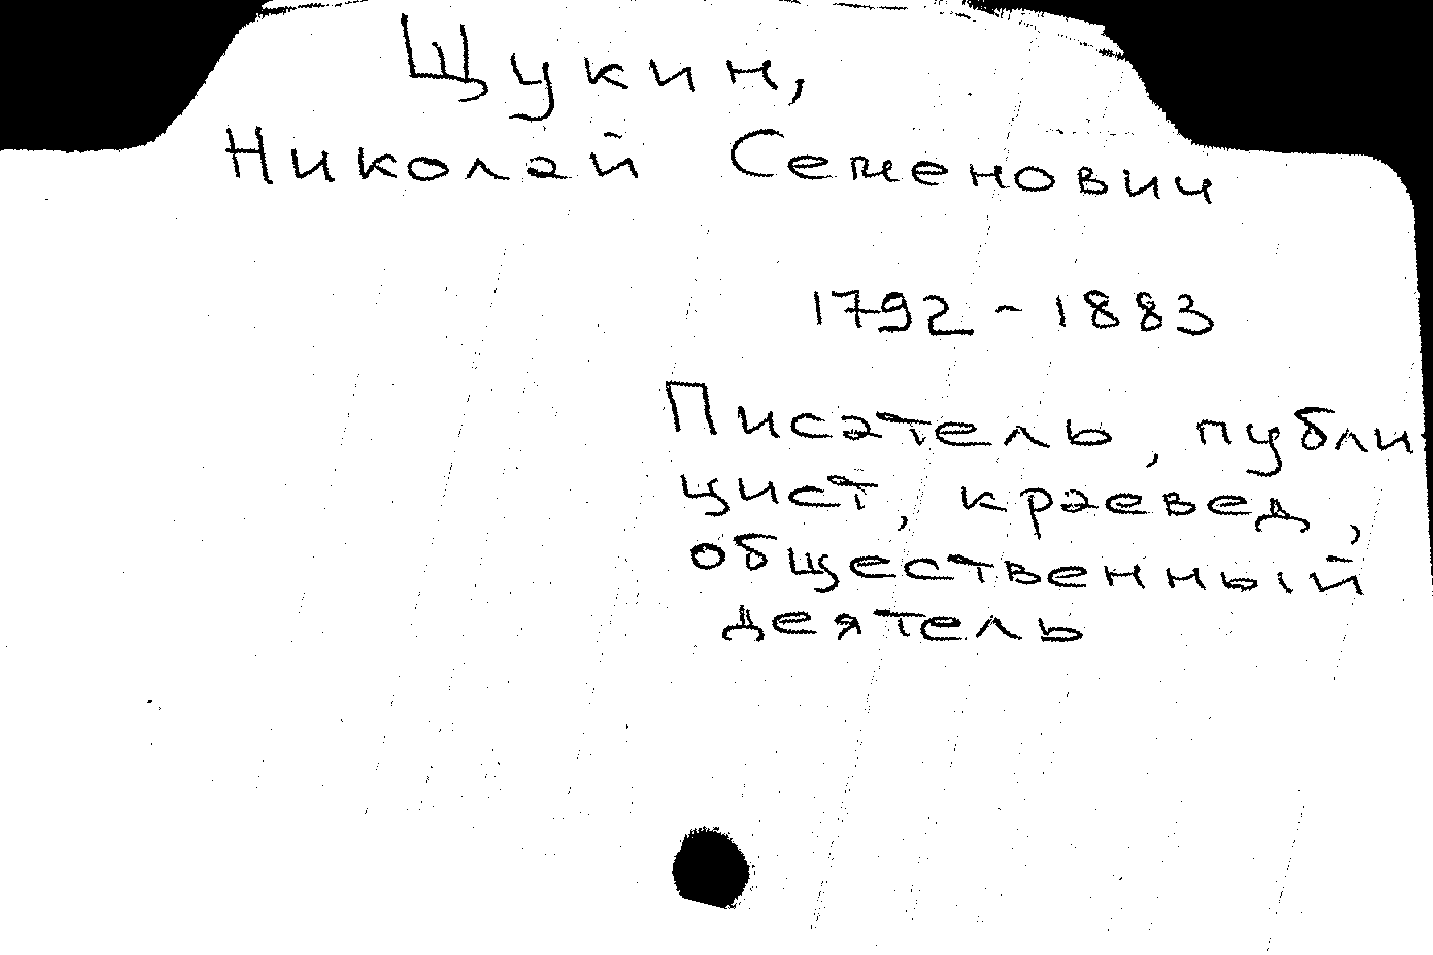 Щукин,
Николай Семенович
1792-1883
Писатель, публи-
цист, краевед,
общественный
деятель